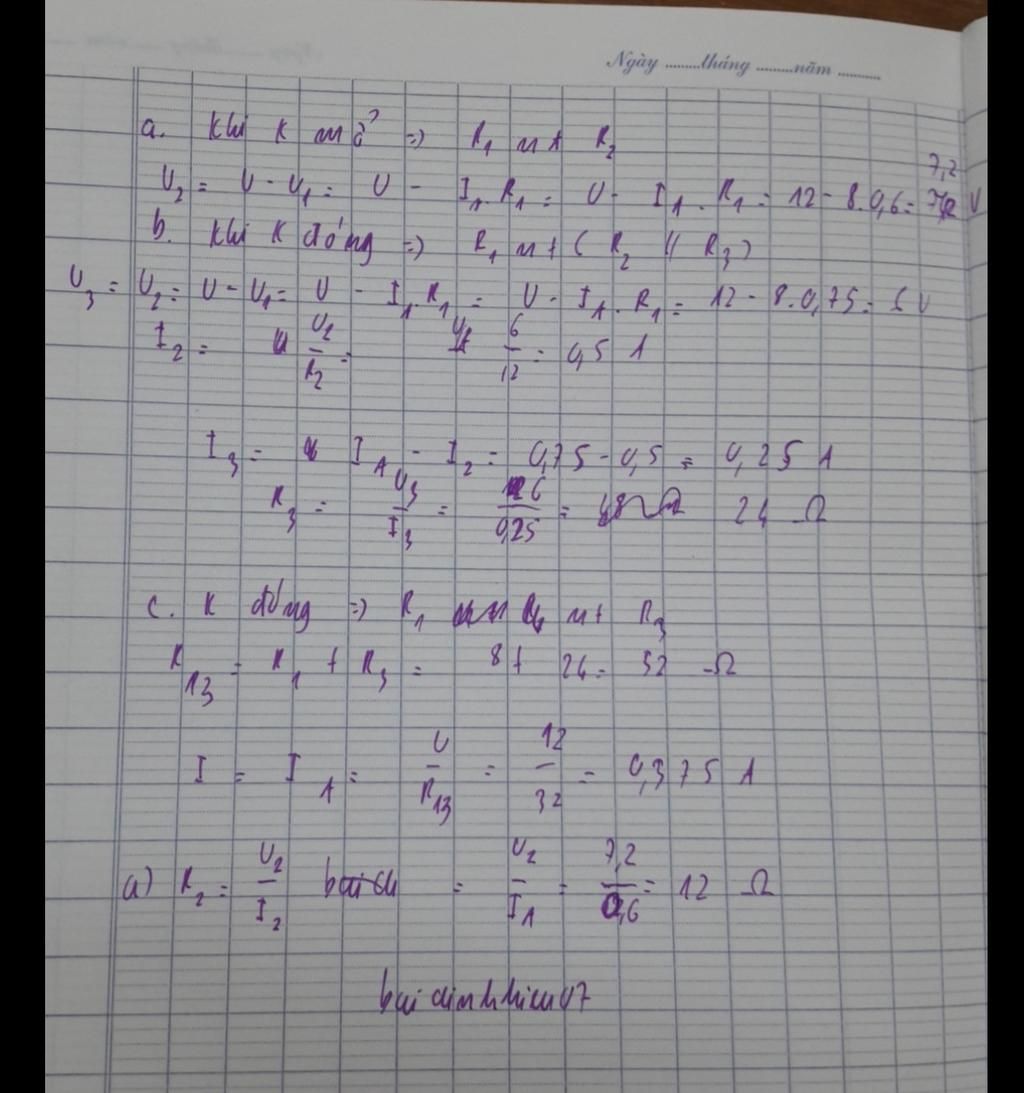 Ngày ........tháng ........năm ..........
a. Khi K mở => R₁ nt R₂
7,2
U₂ = U - U₁ = U - I₁.R₁ = U - I_A.R₁ = 12 - 8.0,6 = V
b. Khi K đóng => R₁ nt (R₂ // R₃)
U₃ = U₂ = U - U₁ = U - I₁.R₁ = U - I_A.R₁ = 12 - 8.0,75 = 6 V
I₂ = U₂/R₂ = 6/12 = 0,5 A
I₃ = I_A - I₂ = 0,75 - 0,5 = 0,25 A
R₃ = U₃/I₃ = 6/0,25 = 24 Ω
c. K đóng => R₁ nt R₃
R₁₃ = R₁ + R₃ = 8 + 24 = 32 Ω
I = I_A = U/R₁₃ = 12/32 = 0,375 A
a) R₂ = U₂/I₂ = U₂/I_A = 7,2/0,6 = 12 Ω
buidinhhieu07